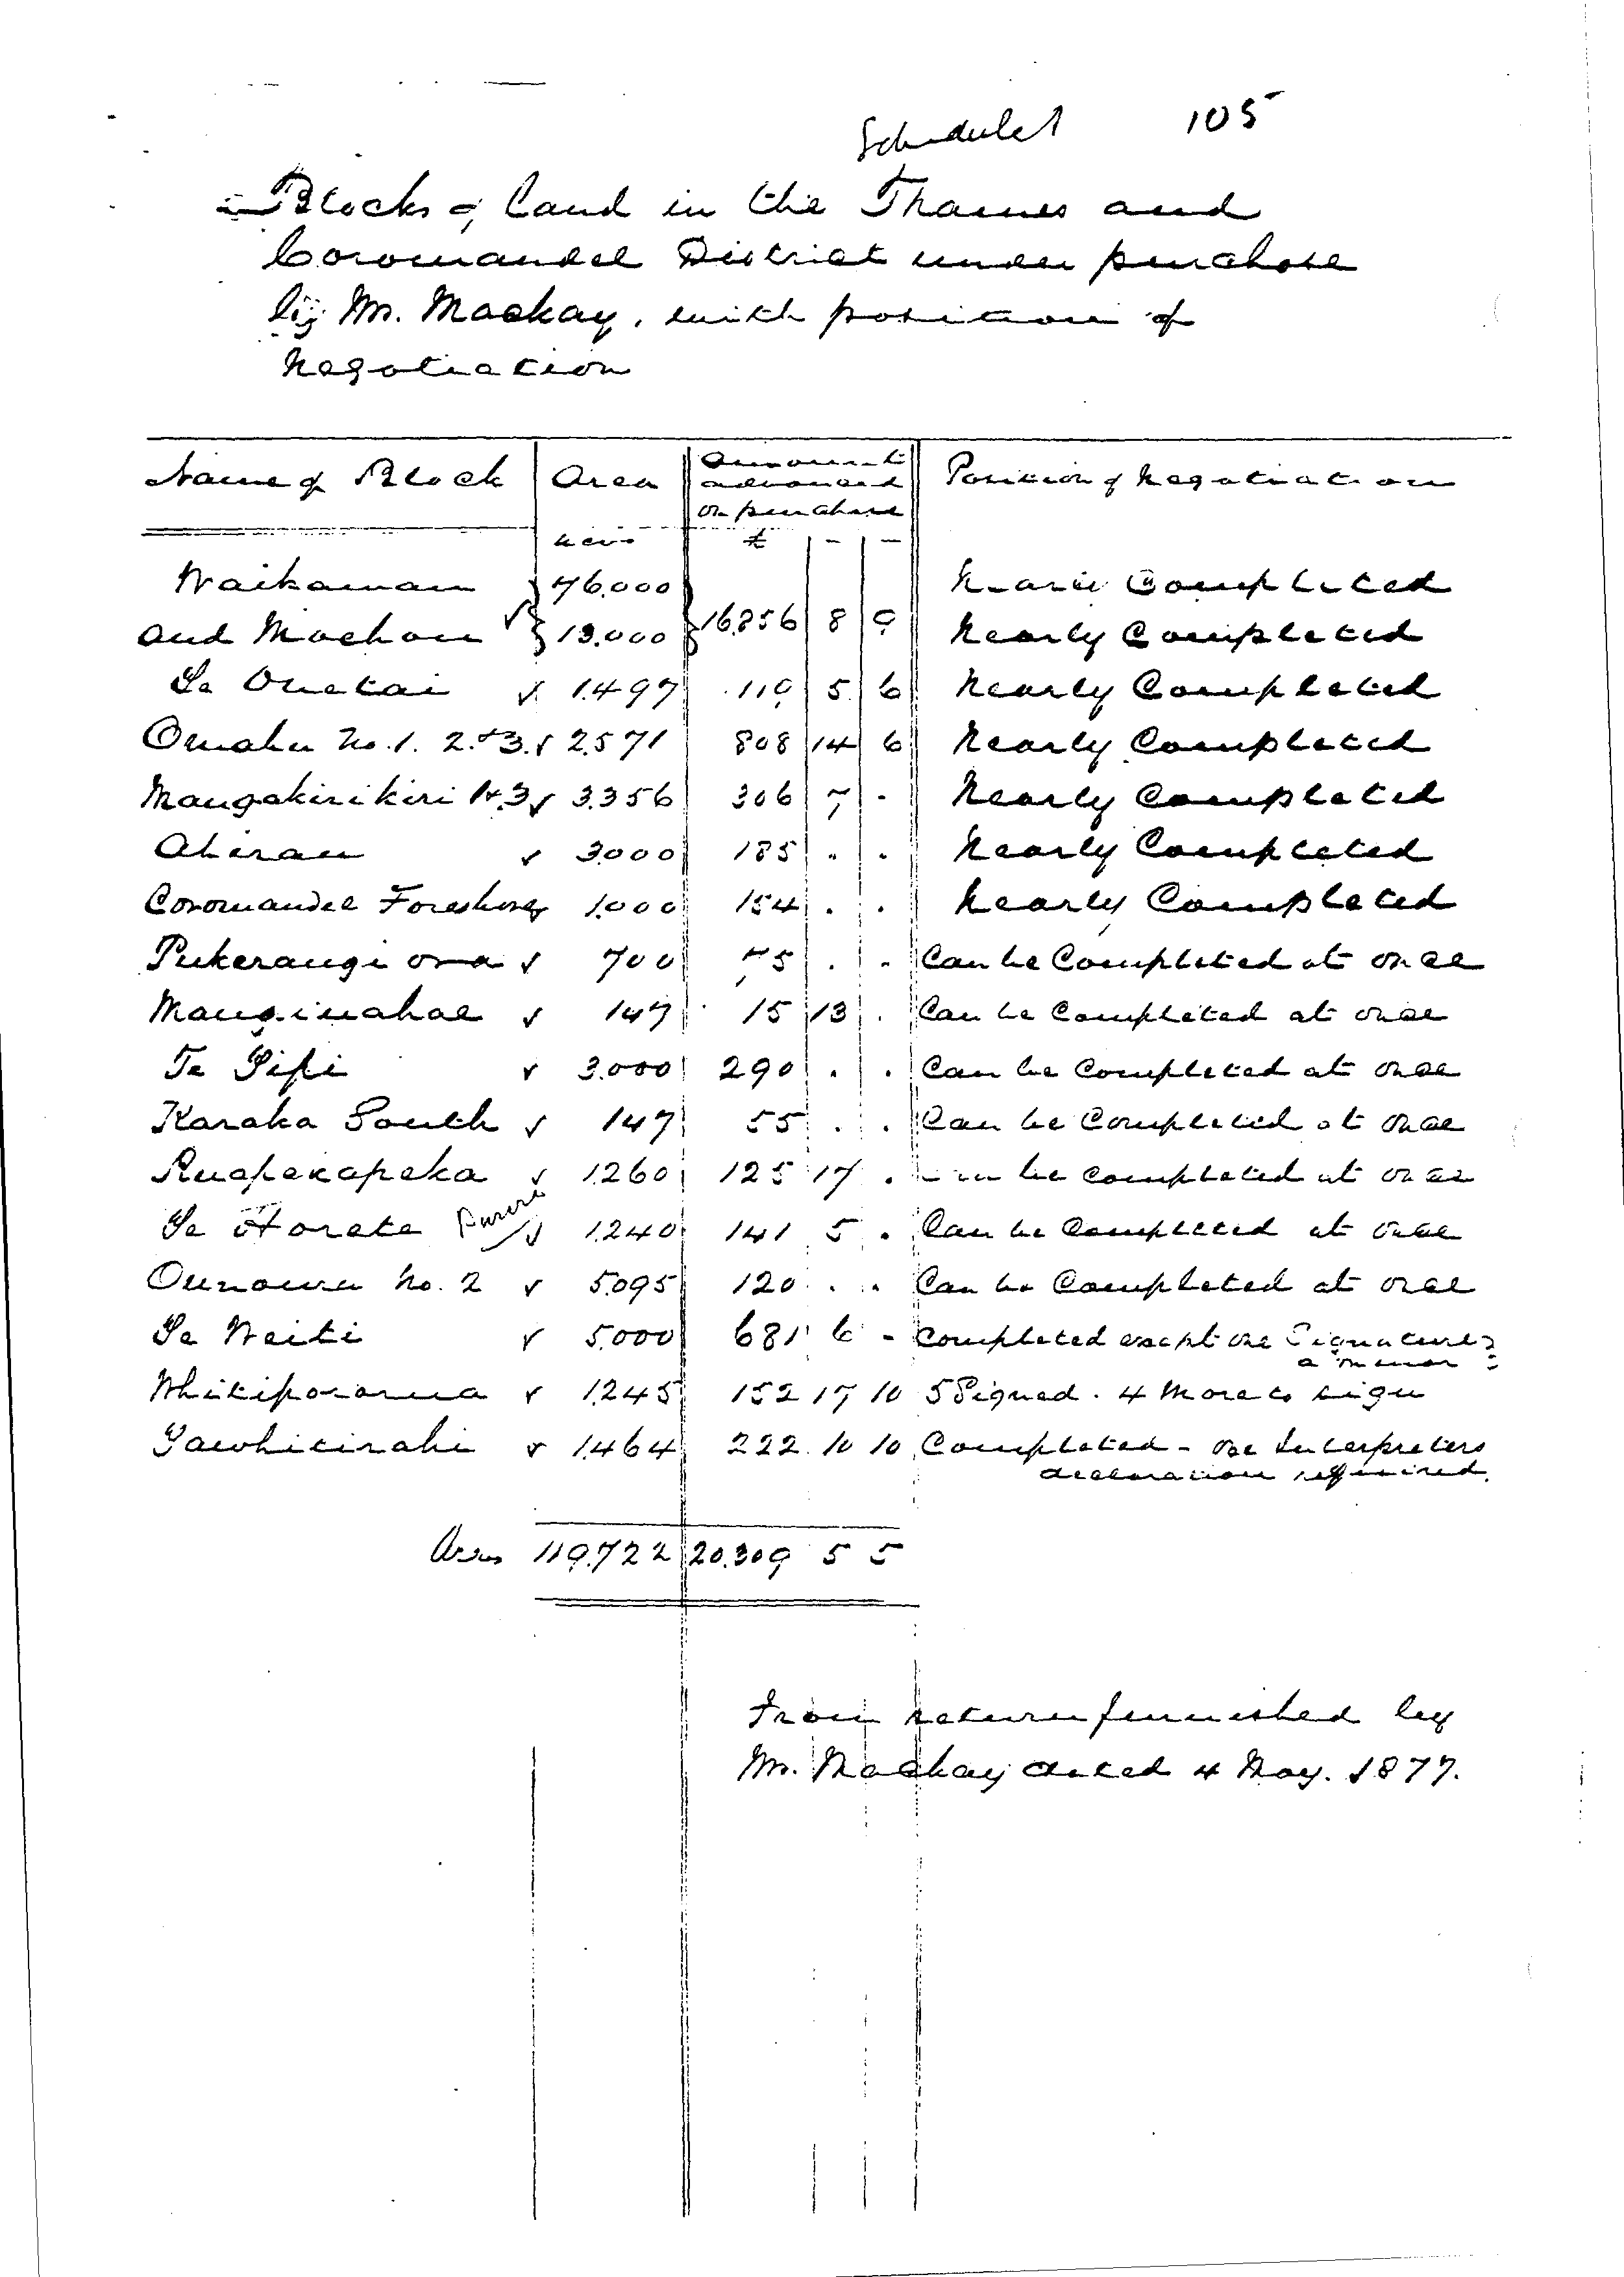 Schedule 1 105
Blocks of Land in the Thames and
Coromandel District under purchase
by Mr. Mackay, with position of
Negotiation
Name of Block Area Amount advanced on purchase Position of Negotiation
£ - -
Waikawau 76.000 Nearly Completed
and Moehau 13.000 16.856 8 9 Nearly Completed
Te Ouetai 1.497 119 5 6 Nearly Completed
Omahu No. 1. 2. & 3. 2.571 808 14 6 Nearly Completed
Mangakirikiri No. 3 3.356 306 7 . Nearly Completed
Ahirau 3.000 185 . . Nearly Completed
Coromandel Foreshores 1.000 154 . . Nearly Completed
Pukerangiora 700 75 . . Can be Completed at once
Manginahae 147 15 13 . Can be Completed at once
Te Pipi 3.000 290 . . Can be Completed at once
Karaka South 147 55 . . Can be Completed at once
Ruapekapeka 1.260 125 17 . Can be Completed at once
Te Horete Puriri 1.240 141 5 . Can be Completed at once
Ounowra No. 2 5.095 120 . . Can be Completed at once
Te Weiti 5.000 681 6 - Completed except one Signature
a minor
1.245 152 17 10 5 Signed. 4 More to sign
Tawhitirahi 1.464 222. 10 10 Completed - one Interpreters
declaration required.
Acres 119.722 20.309 5 5
From return furnished by
Mr. Mackay dated 4 May. 1877.